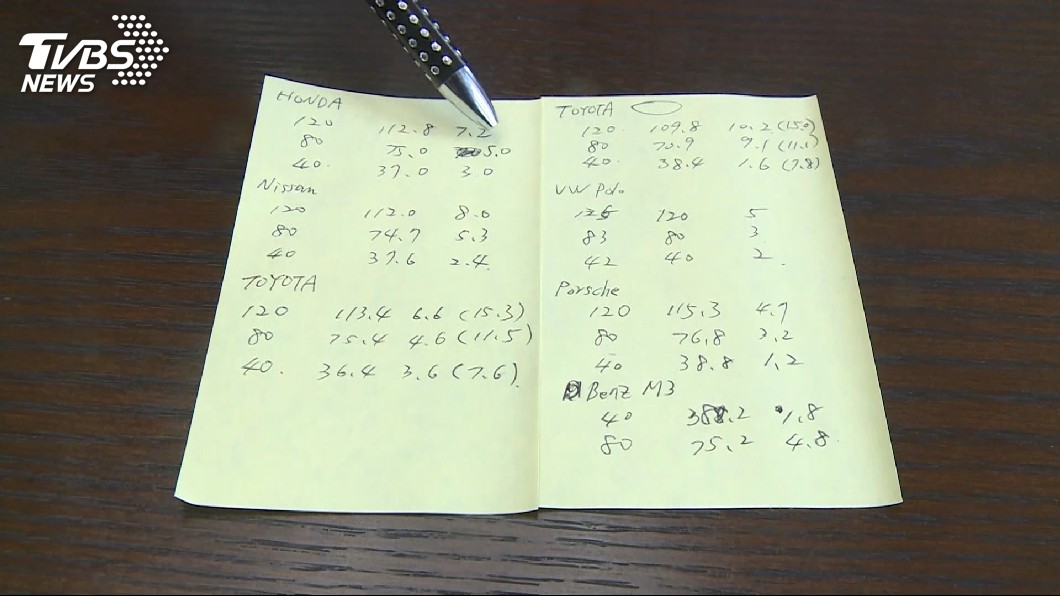 TVBS
NEWS
HONDA
120 112.8 7.2
80 75.0 5.0
40. 37.0 3.0
Nissan
120 112.0 8.0
80 74.7 5.3
40 37.6 2.4.
TOYOTA
120 113.4 6.6 (15.3)
80 75.4 4.6 (11.5)
40. 36.4 3.6 (7.6)
TOYOTA
120. 109.8 10.2 (15.0)
80 70.9 9.1 (11.1)
40. 38.4 1.6 (7.8)
VW Polo
125 120 5
83 80 3
42 40 2.
Porsche
120 115.3 4.7
80 76.8 3.2
40 38.8 1.2
Benz M3
40 38.2 1.8
80 75.2 4.8